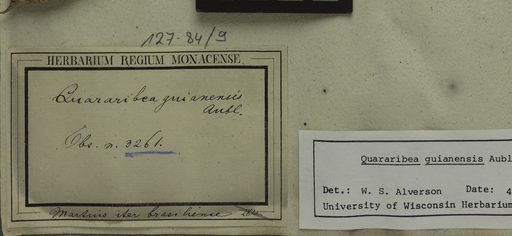 127-84/9
HERBARIUM REGIUM MONACENSE
Quararibea guianensis
Aubl.
Obs. n. 3261.
Martius iter brasiliense
Quararibea guianensis Aubl
Det.: W. S. Alverson Date: 4
University of Wisconsin Herbarium